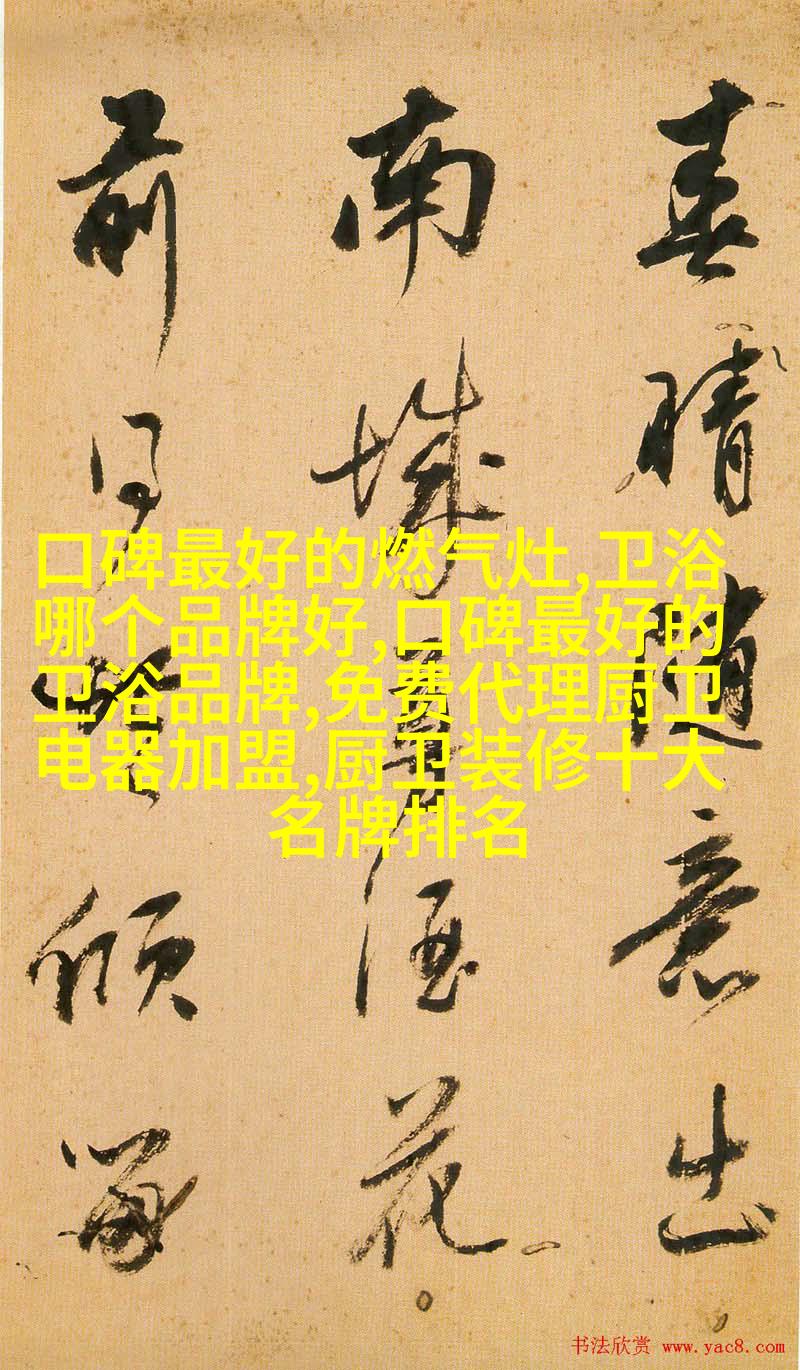 春晴随意出
南城草酒花
前日暂倾
口碑最好的燃气灶,卫浴
哪个品牌好,口碑最好的
卫浴品牌,免费代理厨卫
电器加盟,厨卫装修十大
名牌排名
书法欣赏 www.yac8.com